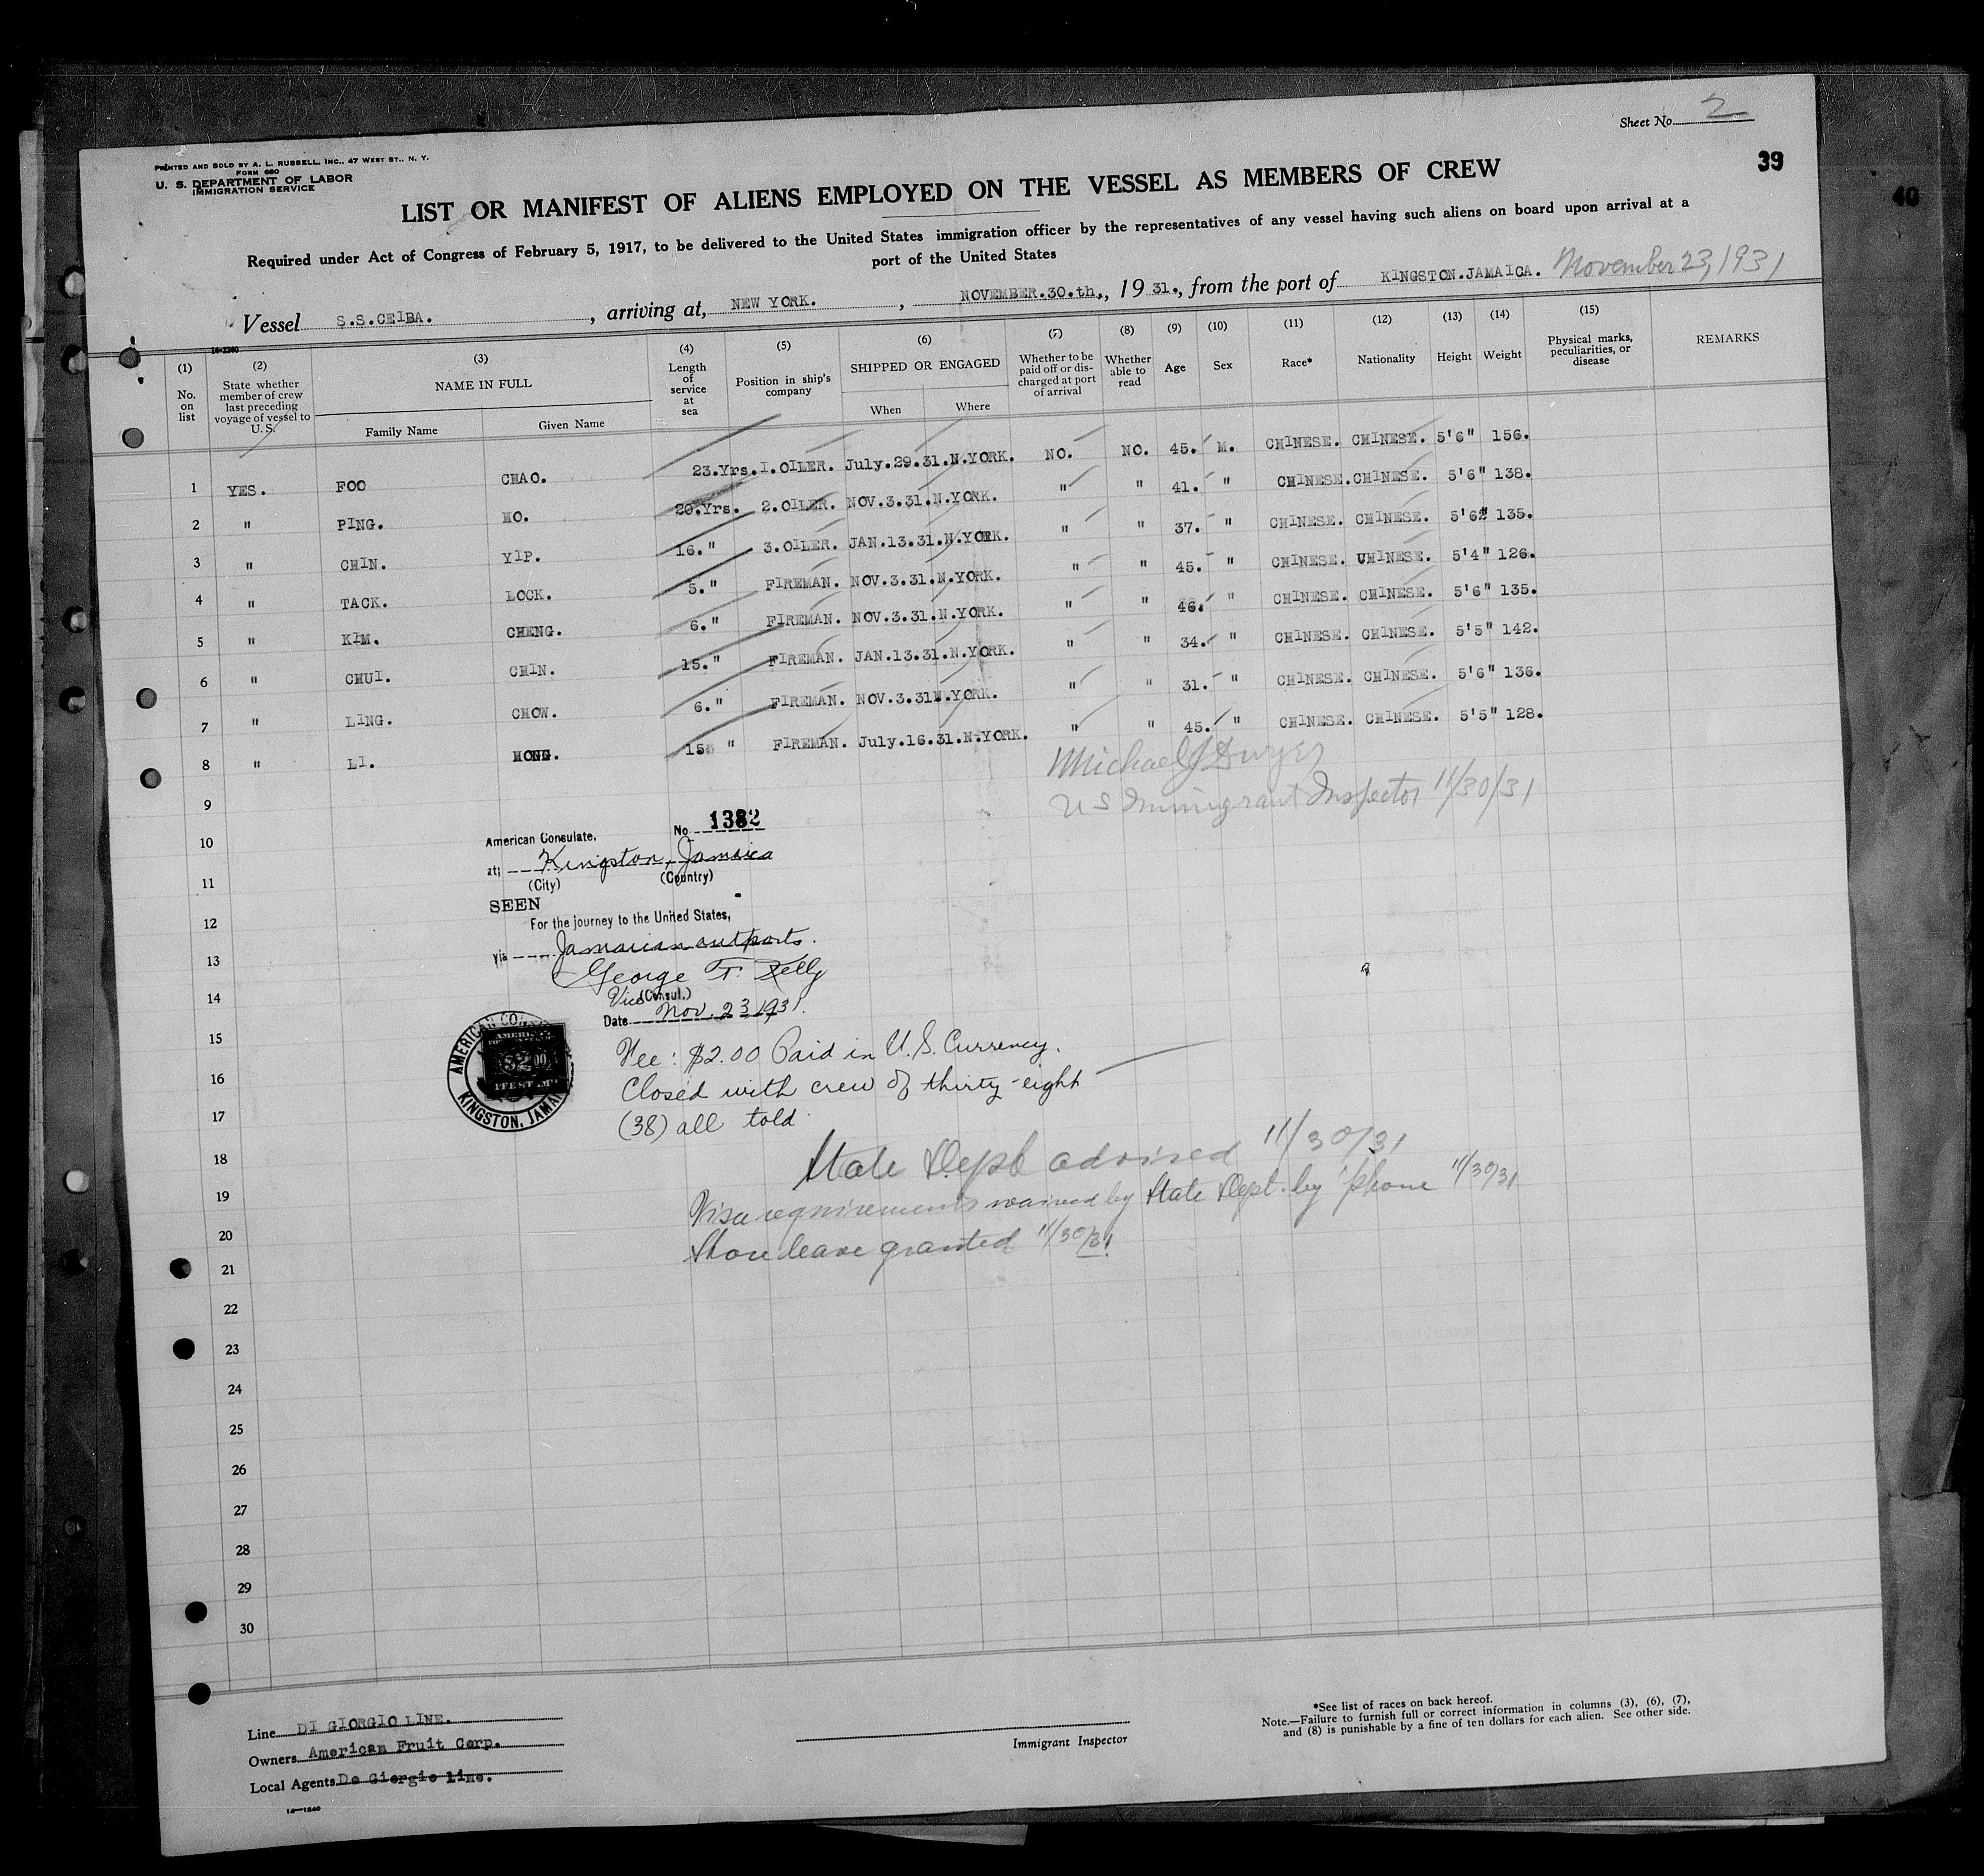 Sheet No. 2
39
40
PRINTED AND SOLD BY A. L. RUSSELL, INC., 47 WEST ST., N. Y.
FORM 680
U. S. DEPARTMENT OF LABOR
IMMIGRATION SERVICE
LIST OR MANIFEST OF ALIENS EMPLOYED ON THE VESSEL AS MEMBERS OF CREW
Required under Act of Congress of February 5, 1917, to be delivered to the United States immigration officer by the representatives of any vessel having such aliens on board upon arrival at a
port of the United States
Vessel S.S.CEIBA. , arriving at, NEW YORK. , NOVEMBER.30.th., 19 31., from the port of KINGSTON.JAMAICA. November 23, 1931
14-1240
(1) (2) (3) (4) (5) (6) (7) (8) (9) (10) (11) (12) (13) (14) (15)
No. on list
State whether member of crew last preceding voyage of vessel to U. S.
NAME IN FULL
Family Name Given Name
Length of service at sea
Position in ship's company
SHIPPED OR ENGAGED
When Where
Whether to be paid off or discharged at port of arrival
Whether able to read
Age
Sex
Race*
Nationality
Height
Weight
Physical marks, peculiarities, or disease
REMARKS
1 YES. FOO CHAO. 23.Yrs. 1.OILER. July.29.31. N.YORK. NO. NO. 45. M. CHINESE. CHINESE. 5'6" 156.
2 " PING. HO. 20.Yrs. 2.OILER. NOV.3.31. N.YORK. " " 41. " CHINESE. CHINESE. 5'6" 138.
3 " CHIN. YIP. 16." 3.OILER. JAN.13.31. N.YORK. " " 37. " CHINESE. CHINESE. 5'6" 135.
4 " TACK. LOCK. 5." FIREMAN. NOV.3.31. N.YORK. " " 45. " CHINESE. CHINESE. 5'4" 126.
5 " KIM. CHENG. 6." FIREMAN. NOV.3.31. N.YORK. " " 46. " CHINESE. CHINESE. 5'6" 135.
6 " CHUI. CHIN. 15." FIREMAN. JAN.13.31. N.YORK. " " 34. " CHINESE. CHINESE. 5'5" 142.
7 " LING. CHOW. 6." FIREMAN. NOV.3.31 N.YORK. " " 31. " CHINESE. CHINESE. 5'6" 136.
8 " LI. HONG. 15 " FIREMAN. July.16.31. N.YORK. " " 45. " CHINESE. CHINESE. 5'5" 128.
Michael J Dwyer
US Immigrant Inspector 11/30/31
9
10
11
12
13
14
15
16
17
18
19
20
21
22
23
24
25
26
27
28
29
30
American Consulate, No. 1382
at; Kingston, Jamaica
(City) (Country)
SEEN
For the journey to the United States,
via Jamaican outports.
George T. Kelly
Vice (Consul.)
Date Nov. 23 1931.
AMERICAN
KINGSTON, JAMAICA
Fee: $2.00 Paid in U.S. Currency.
Closed with crew of thirty-eight
(38) all told
State Dept advised 11/30/31
Visa requirements waived by State Dept. by 'phone 11/30/31
Shore leave granted 11/30/31
Line DI GIORGIO LINE.
Owners American Fruit Corp.
Local Agents De Giorgio line.
14-1240
Immigrant Inspector
*See list of races on back hereof.
Note.—Failure to furnish full or correct information in columns (3), (6), (7),
and (8) is punishable by a fine of ten dollars for each alien. See other side.